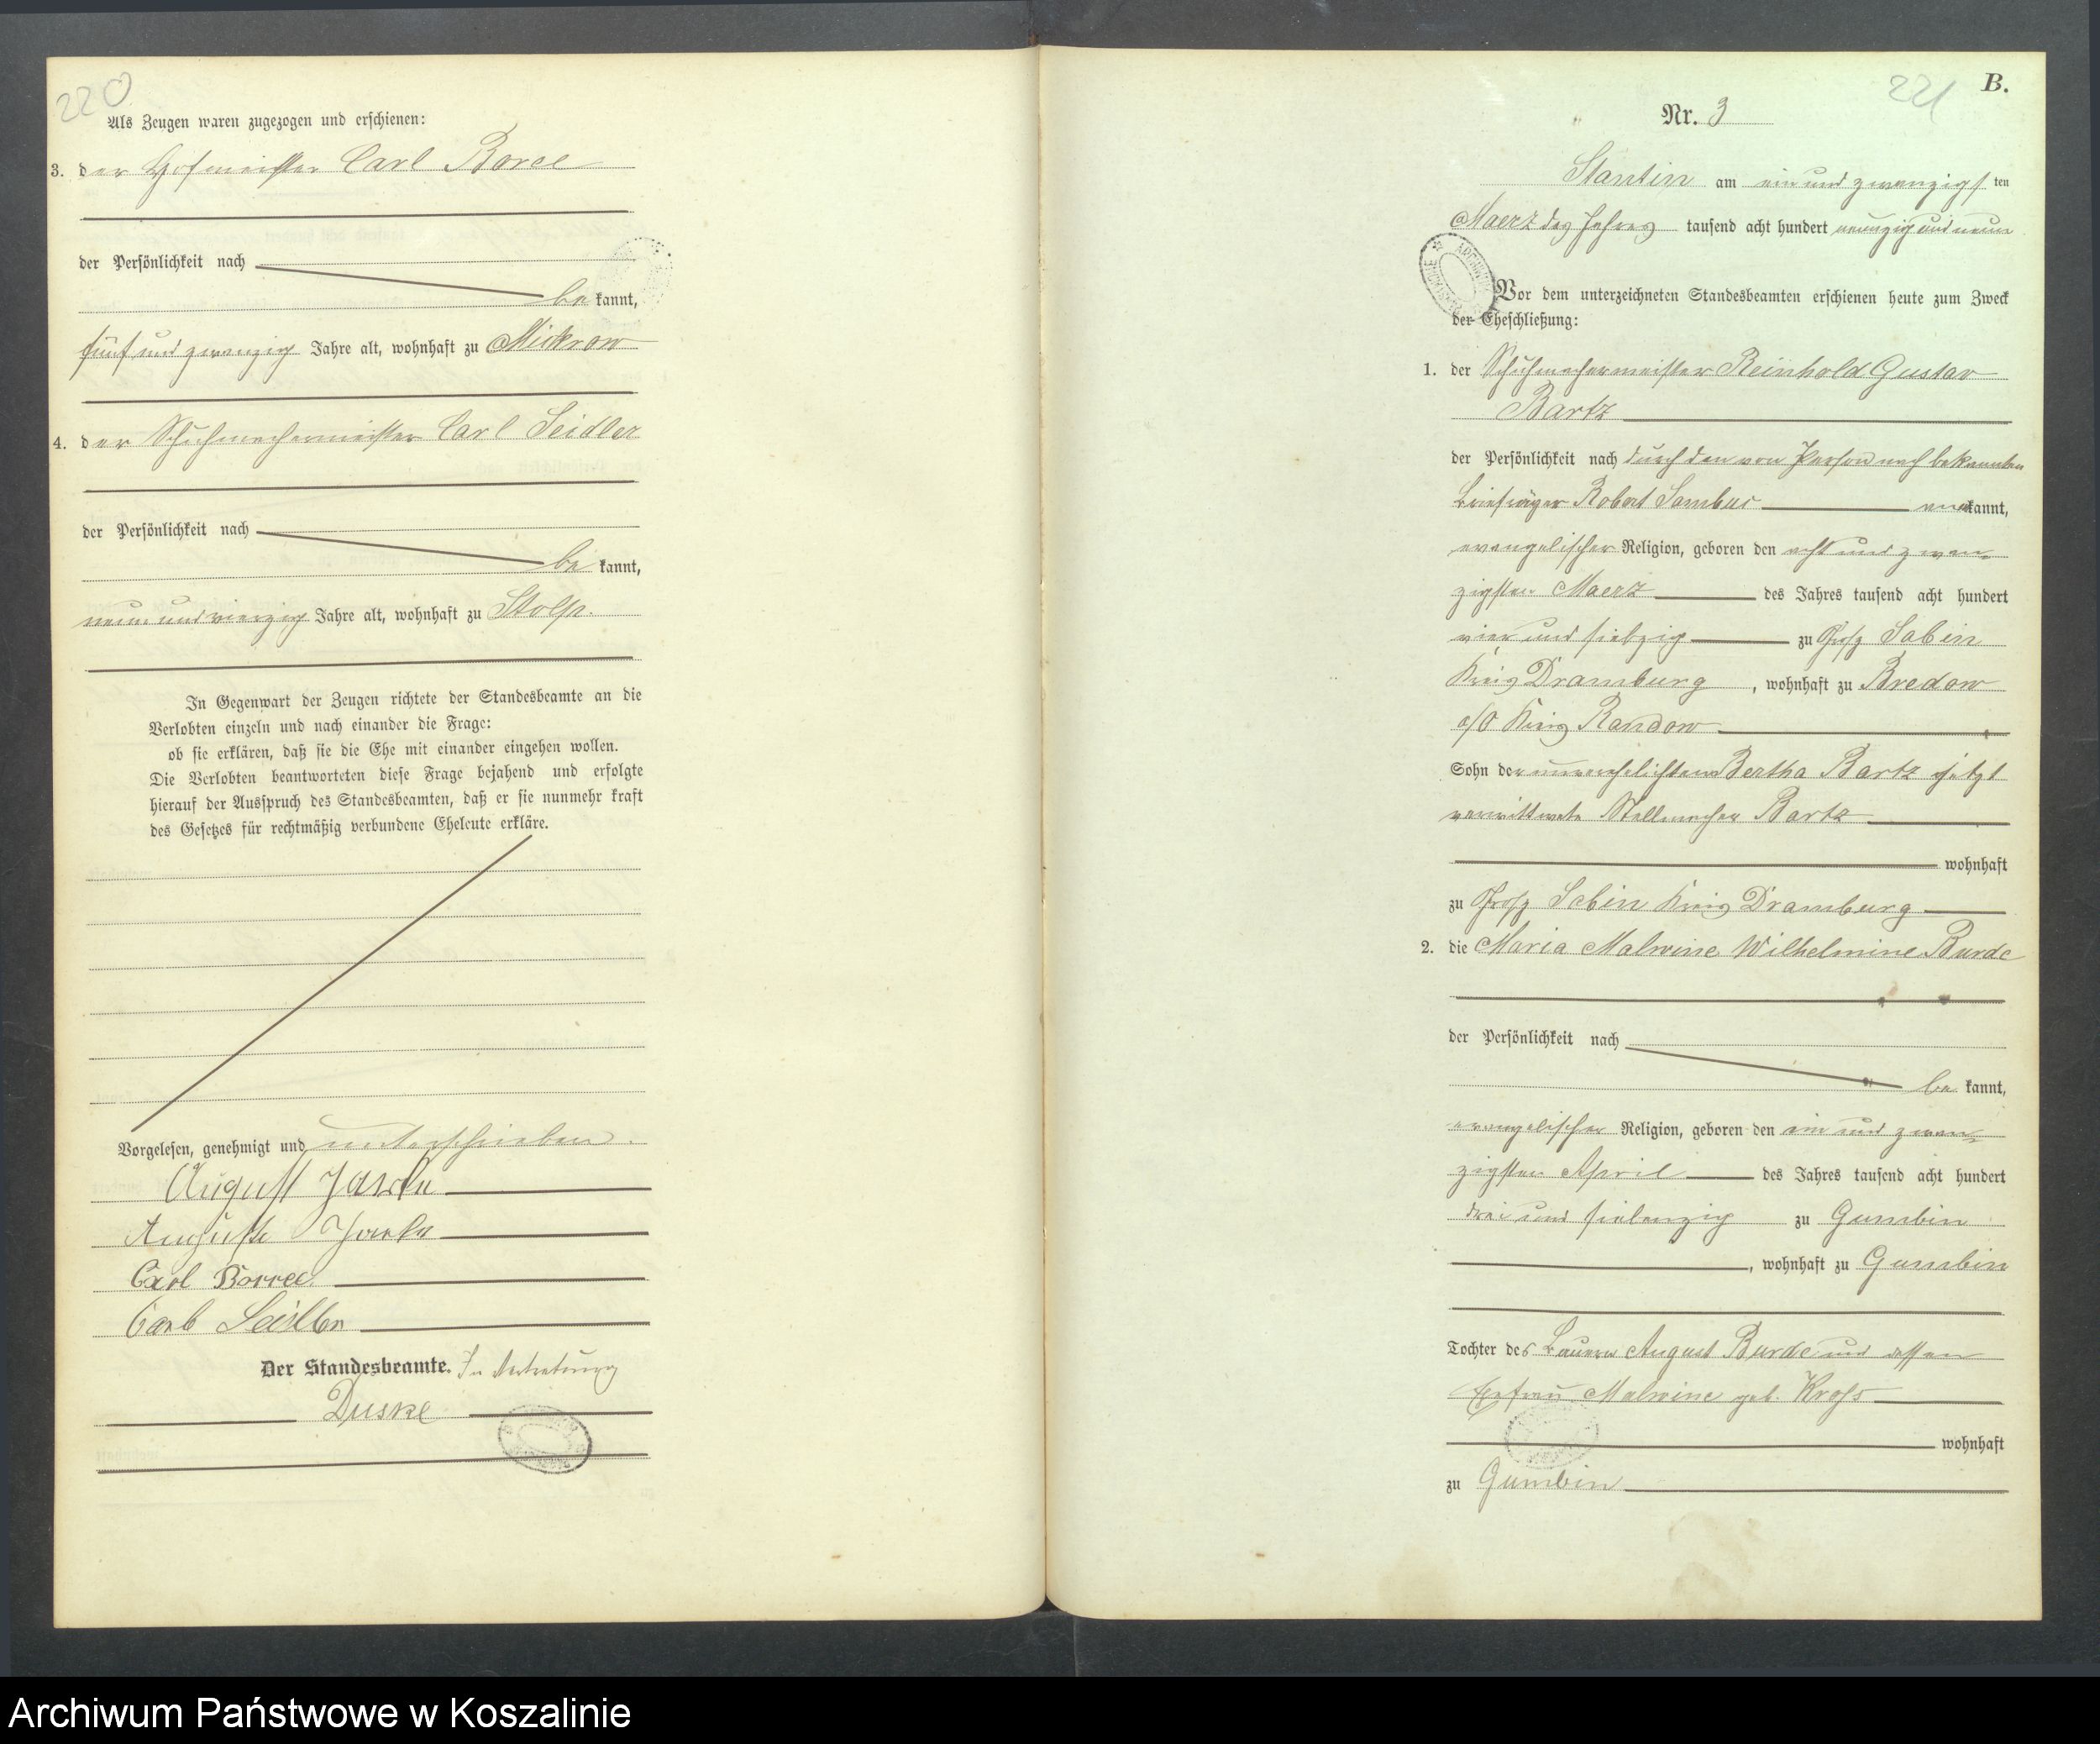 220
Als Zeugen waren zugezogen und erschienen:
3. der Hofmeister Carl Boree
der Persönlichkeit nach
be kannt,
fünf und zwanzig Jahre alt, wohnhaft zu Mickrow
4. der Schuhmachermeister Carl Seidler
der Persönlichkeit nach
be kannt,
neun und vierzig Jahre alt, wohnhaft zu Stolp.
In Gegenwart der Zeugen richtete der Standesbeamte an die
Verlobten einzeln und nach einander die Frage:
ob sie erklären, daß sie die Ehe mit einander eingehen wollen.
Die Verlobten beantworteten diese Frage bejahend und erfolgte
hierauf der Ausspruch des Standesbeamten, daß er sie nunmehr kraft
des Gesetzes für rechtmäßig verbundene Eheleute erkläre.
Vorgelesen, genehmigt und unterschrieben.
August
Auguste
Carl Borree
Carl Seidler
Der Standesbeamte. In Vertretung
Duske
221
B.
Nr. 3
Stantin am ein und zwanzigs ten
Maerz des Jahres tausend acht hundert neunzig und neun
Vor dem unterzeichneten Standesbeamten erschienen heute zum Zweck
der Eheschließung:
1. der Schuhmachermeister Reinhold Gustav
Bartz
der Persönlichkeit nach durch den von Person nach bekannten
Briefträger Robert aner kannt,
evangelischer Religion, geboren den acht und zwan-
zigsten Maerz des Jahres tausend acht hundert
vier und siebzig zu Groß Sabin
Kreis Dramburg, wohnhaft zu Bredow
a/O Kreis Randow
Sohn der unverehelichten Bertha Bartz jetzt
verwittwete Stellmacher Bartz
wohnhaft
zu Groß Sabin Kreis Dramburg
2. die Maria Malwine Wilhelmine Burde
der Persönlichkeit nach
be kannt,
evangelischer Religion, geboren den ein und zwan-
zigsten April des Jahres tausend acht hundert
drei und siebenzig zu Gumbin
, wohnhaft zu Gumbin
Tochter des Bauern August Burde und dessen
Ehefrau Malwine geb. Kroß
wohnhaft
zu Gumbin
Archiwum Państwowe w Koszalinie